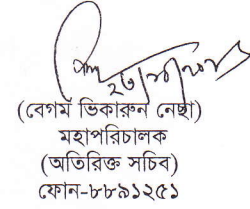 (বেগম ভিকারুন নেছা)
মহাপরিচালক
(অতিরিক্ত সচিব)
ফোন-৮৮৯১২৫১